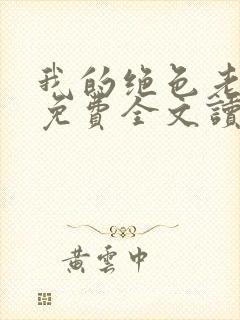 我的绝色老
免費全文讀
黃雲中